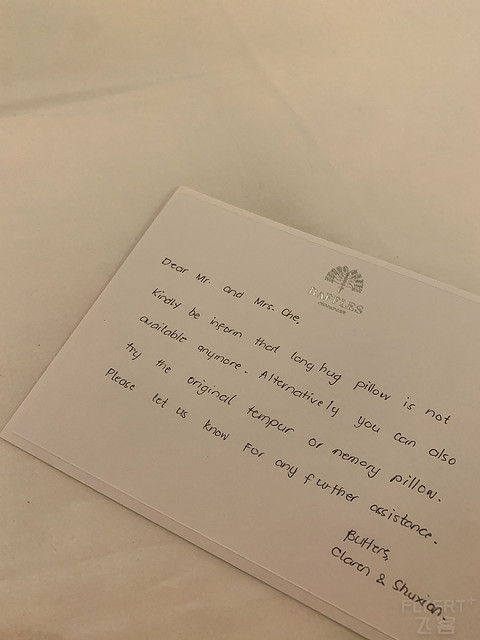 RAFFLES
Dear Mr. and Mrs. Che,
Kindly be inform that long hug pillow is not
available anymore. Alternatively you can also
try the original tempur or memory pillow.
Please let us know for any further assistance.
Butlers,
Claren & Shuxian.
FLYERT+
飞客